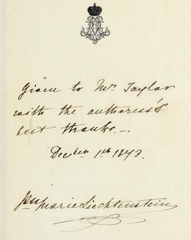 Given to Mrs Taylor
with the authoress's
best thanks. —
Decber 1st 1873.
Pss Marie Liechtenstein